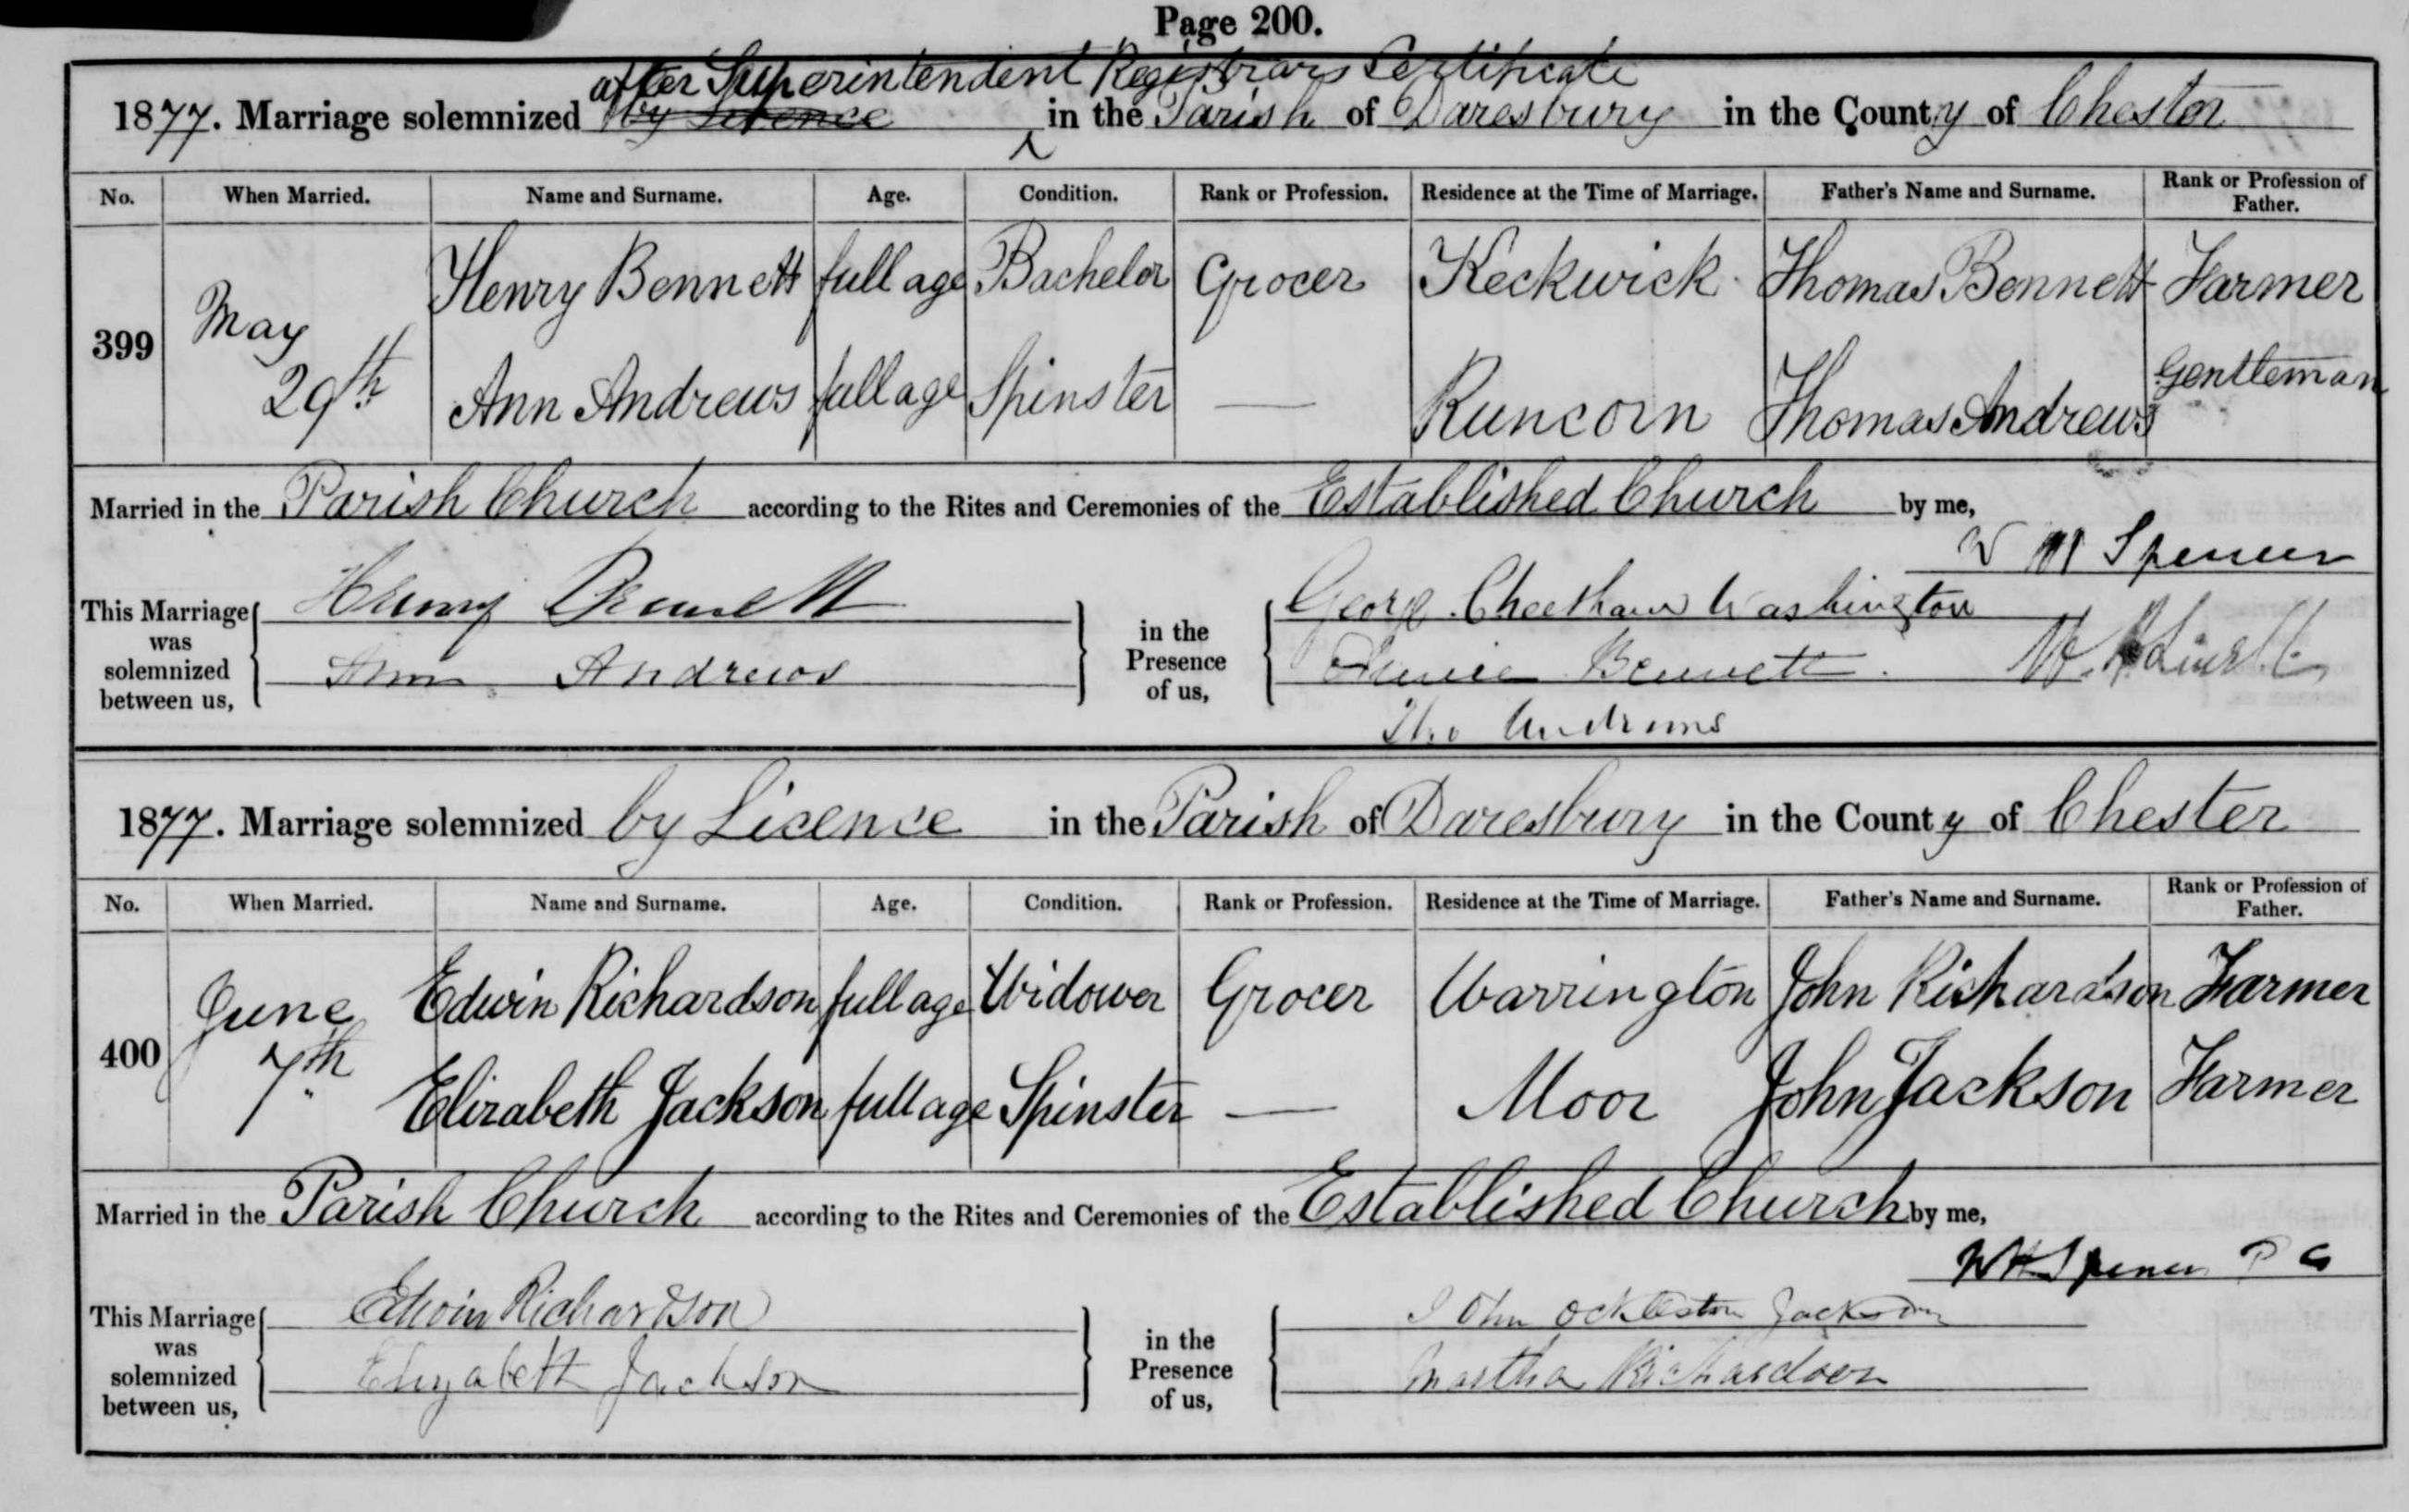 Page 200.
after Superintendent Registrars Certificate
1877. Marriage solemnized by Licence in the Parish of Daresbury in the County of Chester
No. When Married. Name and Surname. Age. Condition. Rank or Profession. Residence at the Time of Marriage. Father's Name and Surname. Rank or Profession of Father.
399 May 29th Henry Bennett full age Bachelor Grocer Keckwick Thomas Bennett Farmer
Ann Andrews full age Spinster — Runcorn Thomas Andrews Gentleman
Married in the Parish Church according to the Rites and Ceremonies of the Established Church by me,
W Spencer
This Marriage was solemnized between us, Henry Bennett in the Presence of us, George Cheetham Washington
Ann Andrews Bennett
Tho Andrews
1877. Marriage solemnized by Licence in the Parish of Daresbury in the County of Chester
No. When Married. Name and Surname. Age. Condition. Rank or Profession. Residence at the Time of Marriage. Father's Name and Surname. Rank or Profession of Father.
400 June 7th Edwin Richardson full age Widower Grocer Warrington John Richardson Farmer
Elizabeth Jackson full age Spinster — Moor John Jackson Farmer
Married in the Parish Church according to the Rites and Ceremonies of the Established Church by me,
WH Spencer P C
This Marriage was solemnized between us, Edwin Richardson in the Presence of us, John Ockleston Jackson
Elizabeth Jackson Martha Richardson